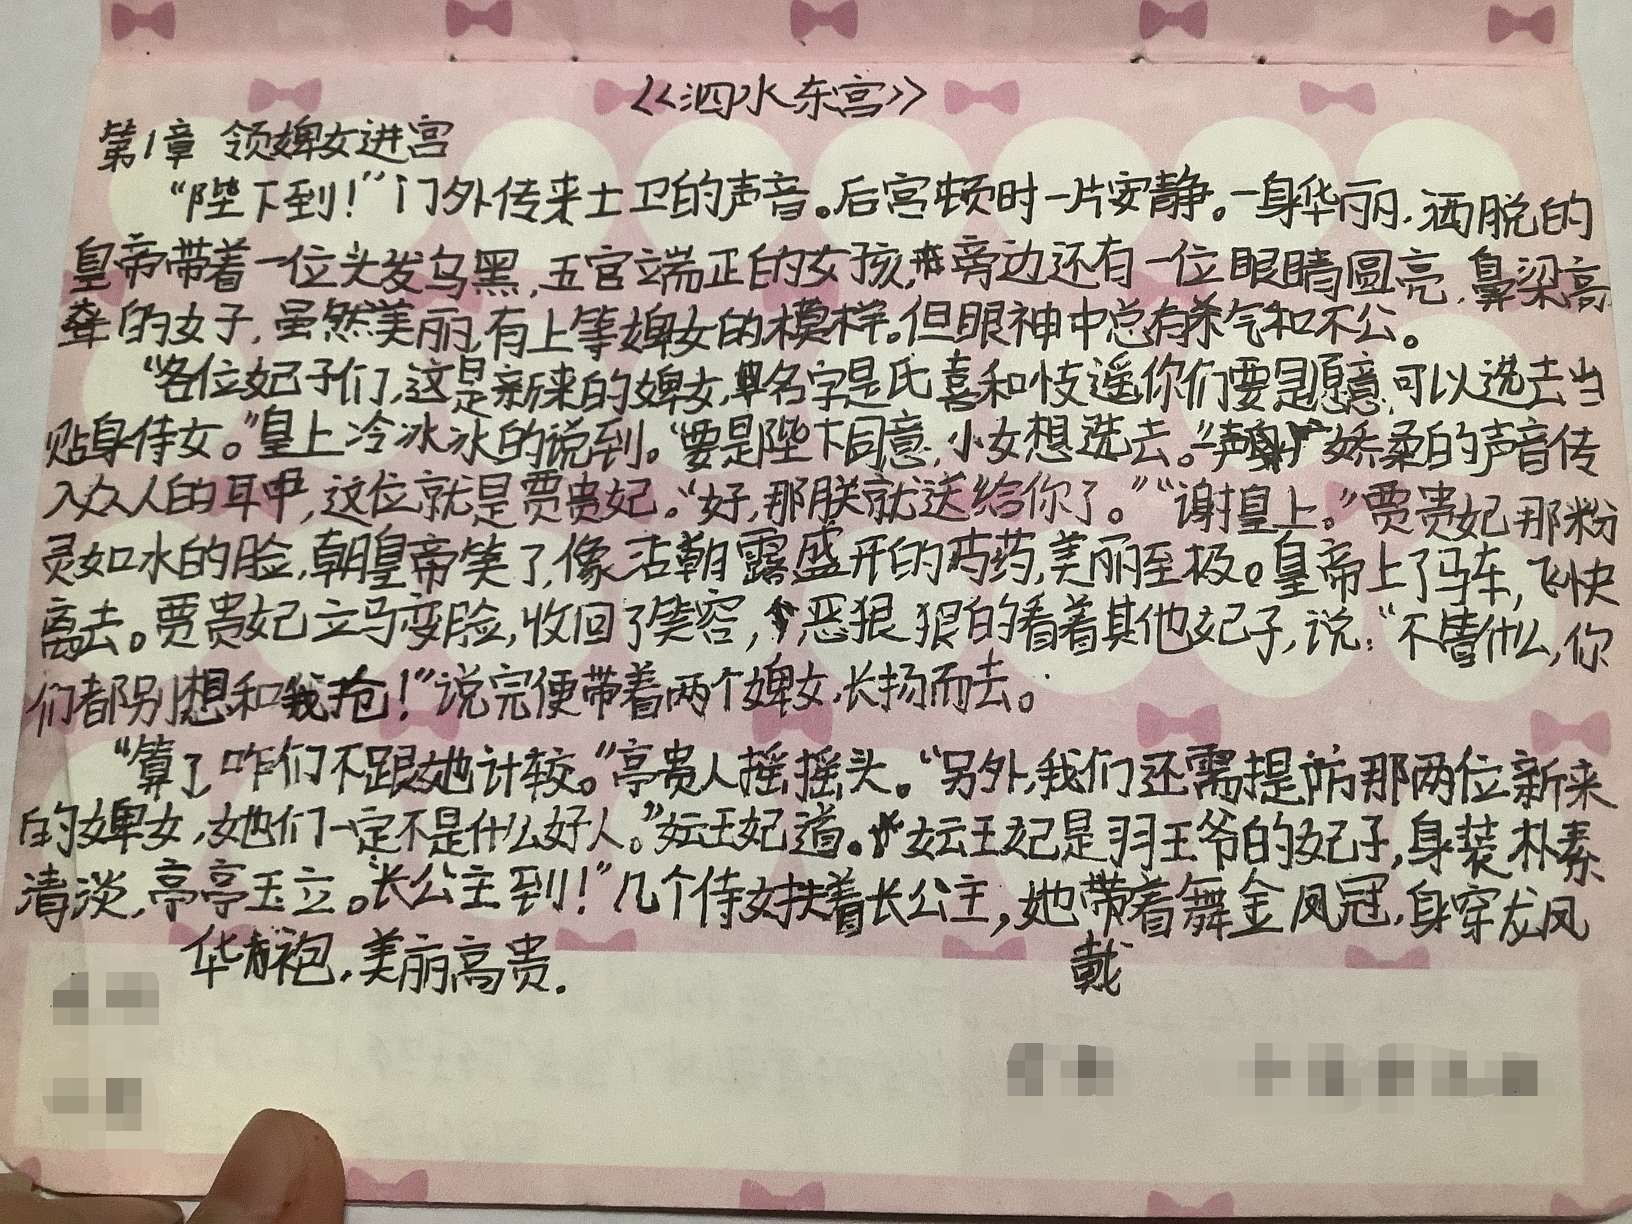 《泗水东宫》
第1章 领婢女进宫
“陛下到！”门外传来士卫的声音。后宫顿时一片安静。一身华丽，洒脱的
皇帝带着一位头发乌黑，五官端正的女孩，旁边还有一位眼睛圆亮，鼻梁高
耸的女子，虽然美丽，有上等婢女的模样。但眼神中总有杀气和不公。
“各位妃子们，这是新来的婢女，名字是氏喜和忮遥你们要是愿意，可以选去当
贴身侍女。”皇上冷冰冰的说到。“要是陛下同意，小女想选去。”一声娇柔的声音传
入众人的耳中，这位就是贾贵妃。“好，那朕就送给你了。”“谢皇上。”贾贵妃那粉
灵如水的脸，朝皇帝笑了，像沾朝露盛开的芍药，美丽至极。皇帝上了马车，飞快
离去。贾贵妃立马变脸，收回了笑容，恶狠狠的看着其他妃子，说：“不管什么，你
们都别想和我抢！”说完便带着两个婢女，长扬而去。
“算了，咋们不跟她计较。”亭贵人摇摇头。“另外，我们还需提防那两位新来
的婢女，她们一定不是什么好人。”妘王妃道。妘王妃是羽王爷的妃子，身装朴素
清淡，亭亭玉立。“长公主到！”几个侍女扶着长公主，她带着舞金凤冠，身穿龙凤
华袍，美丽高贵。
戴